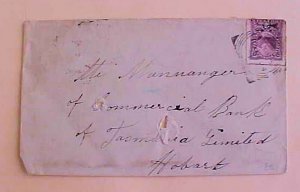 The Manuanger
of Commercial Bank
of Tasmania Limited
Hobart